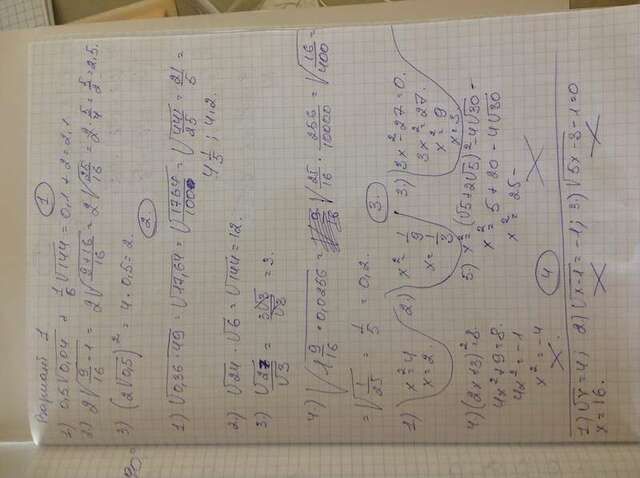 Вариант 1 ①
1) 0,5√0,04 + 1/6√144 = 0,1 + 2 = 2,1
2) 2√(9/16 - 1) = 2√((9+16)/16) = 2√(25/16) = 2 · 5/4 = 5/2 = 2,5.
3) (2√0,5)² = 4 · 0,5 = 2.
②.
1) √(0,36 · 49) = √17,64 = √(1764/100) = √(441/25) = 21/5 =
4 1/5 ; 4,2.
2.) √24 · √6 = √144 = 12.
3) √27/√3 = 3√3/√3 = 3.
4.) √(1 9/16 · 0,0256) = √(25/16 · 256/10000) = √(16/400) =
= √(1/25) = 1/5 = 0,2.
③.
1) x² = 4 2.) x² = 1/9 3.) 3x² - 27 = 0.
x = 2. x = 1/3 3x² = 27.
x² = 9
x = 3.
4) (2x+3)² = 8 5.) x² = (√5 + 2√5)² - 4√30 -
4x² + 9 = 8. x² = 5 + 20 - 4√30
4x² = -1 x² = 25 -
x² = -4
④
1) √x = 4; 2) √(x-1) = -1; 3.) √(5x-3) - 1 = 0
x = 16.